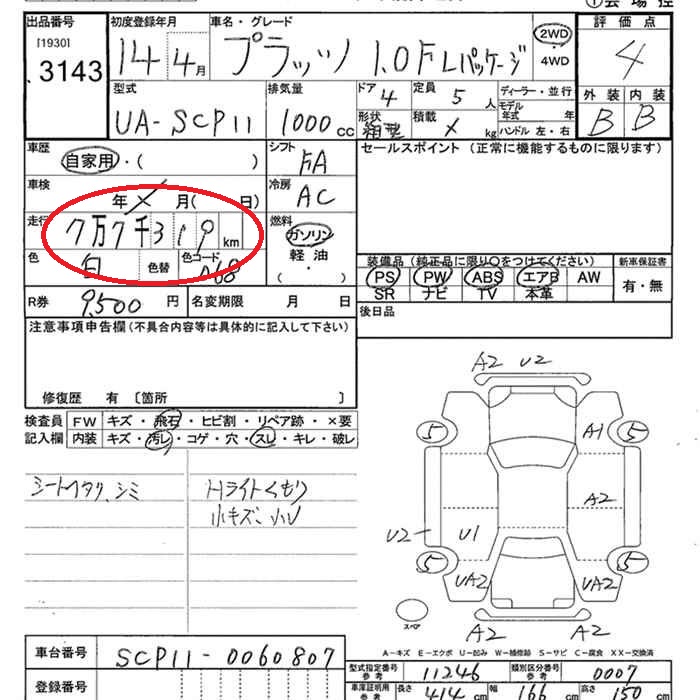 ①会場控
出品番号 初度登録年月 車名・グレード 評価点
[1930]
3143 14年 4月 プラッツ 1.0 F Lパッケージ 2WD ・ 4WD 4
型式 排気量 ドア 定員 ディーラー・並行 外装 内装
UA-SCP11 1000 CC 4 5 人 モデル年式 年 B B
形状 積載 ハンドル 左・右
箱型 × kg
車歴 シフト セールスポイント (正常に機能するものに限ります)
自家用・( ) FA
車検 冷房
年 × 月( 日) AC
走行 燃料
7万7千319 km ガソリン
軽油
・( )
色 色替 色コード 装備品 (純正品に限り○をつけてください) 新車保証書
白 068 PS PW ABS エアB AW 有・無
SR ナビ TV 本革
R券 9,500 円 名変期限 月 日 後日品
注意事項申告欄 (不具合内容等は具体的に記入して下さい)
修復歴 有 〔箇所 〕
検査員 FW キズ・飛石・ヒビ割・リペア跡・×要
記入欄 内装 キズ・汚レ・コゲ・穴・スレ・キレ・破レ
シートヘタリ、シミ Hライトくもり
小キズ、小U
A2 U2
5 A1 5
A2
U2 U1
5 UA2 UA2 5
スペア A2 A2
A-キズ E-エクボ U-凹み W-補修跡 S-サビ C-腐食 XX-交換済
車台番号 SCP11-0060807
型式指定番号 参考 11246 類別区分番号 参考 0007
登録番号
車庫証明用 参考 長さ 414 cm 幅 166 cm 高さ 150 cm